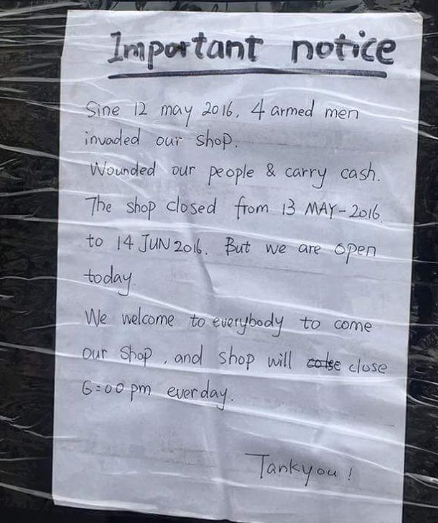 Important notice
Sine 12 may 2016, 4 armed men
invaded our shop.
Wounded our people & carry cash.
The shop closed from 13 MAY-2016
to 14 JUN 2016. But we are open
today.
We welcome to everybody to come
our shop, and shop will colse close
6:00 pm everday.
Tankyou!